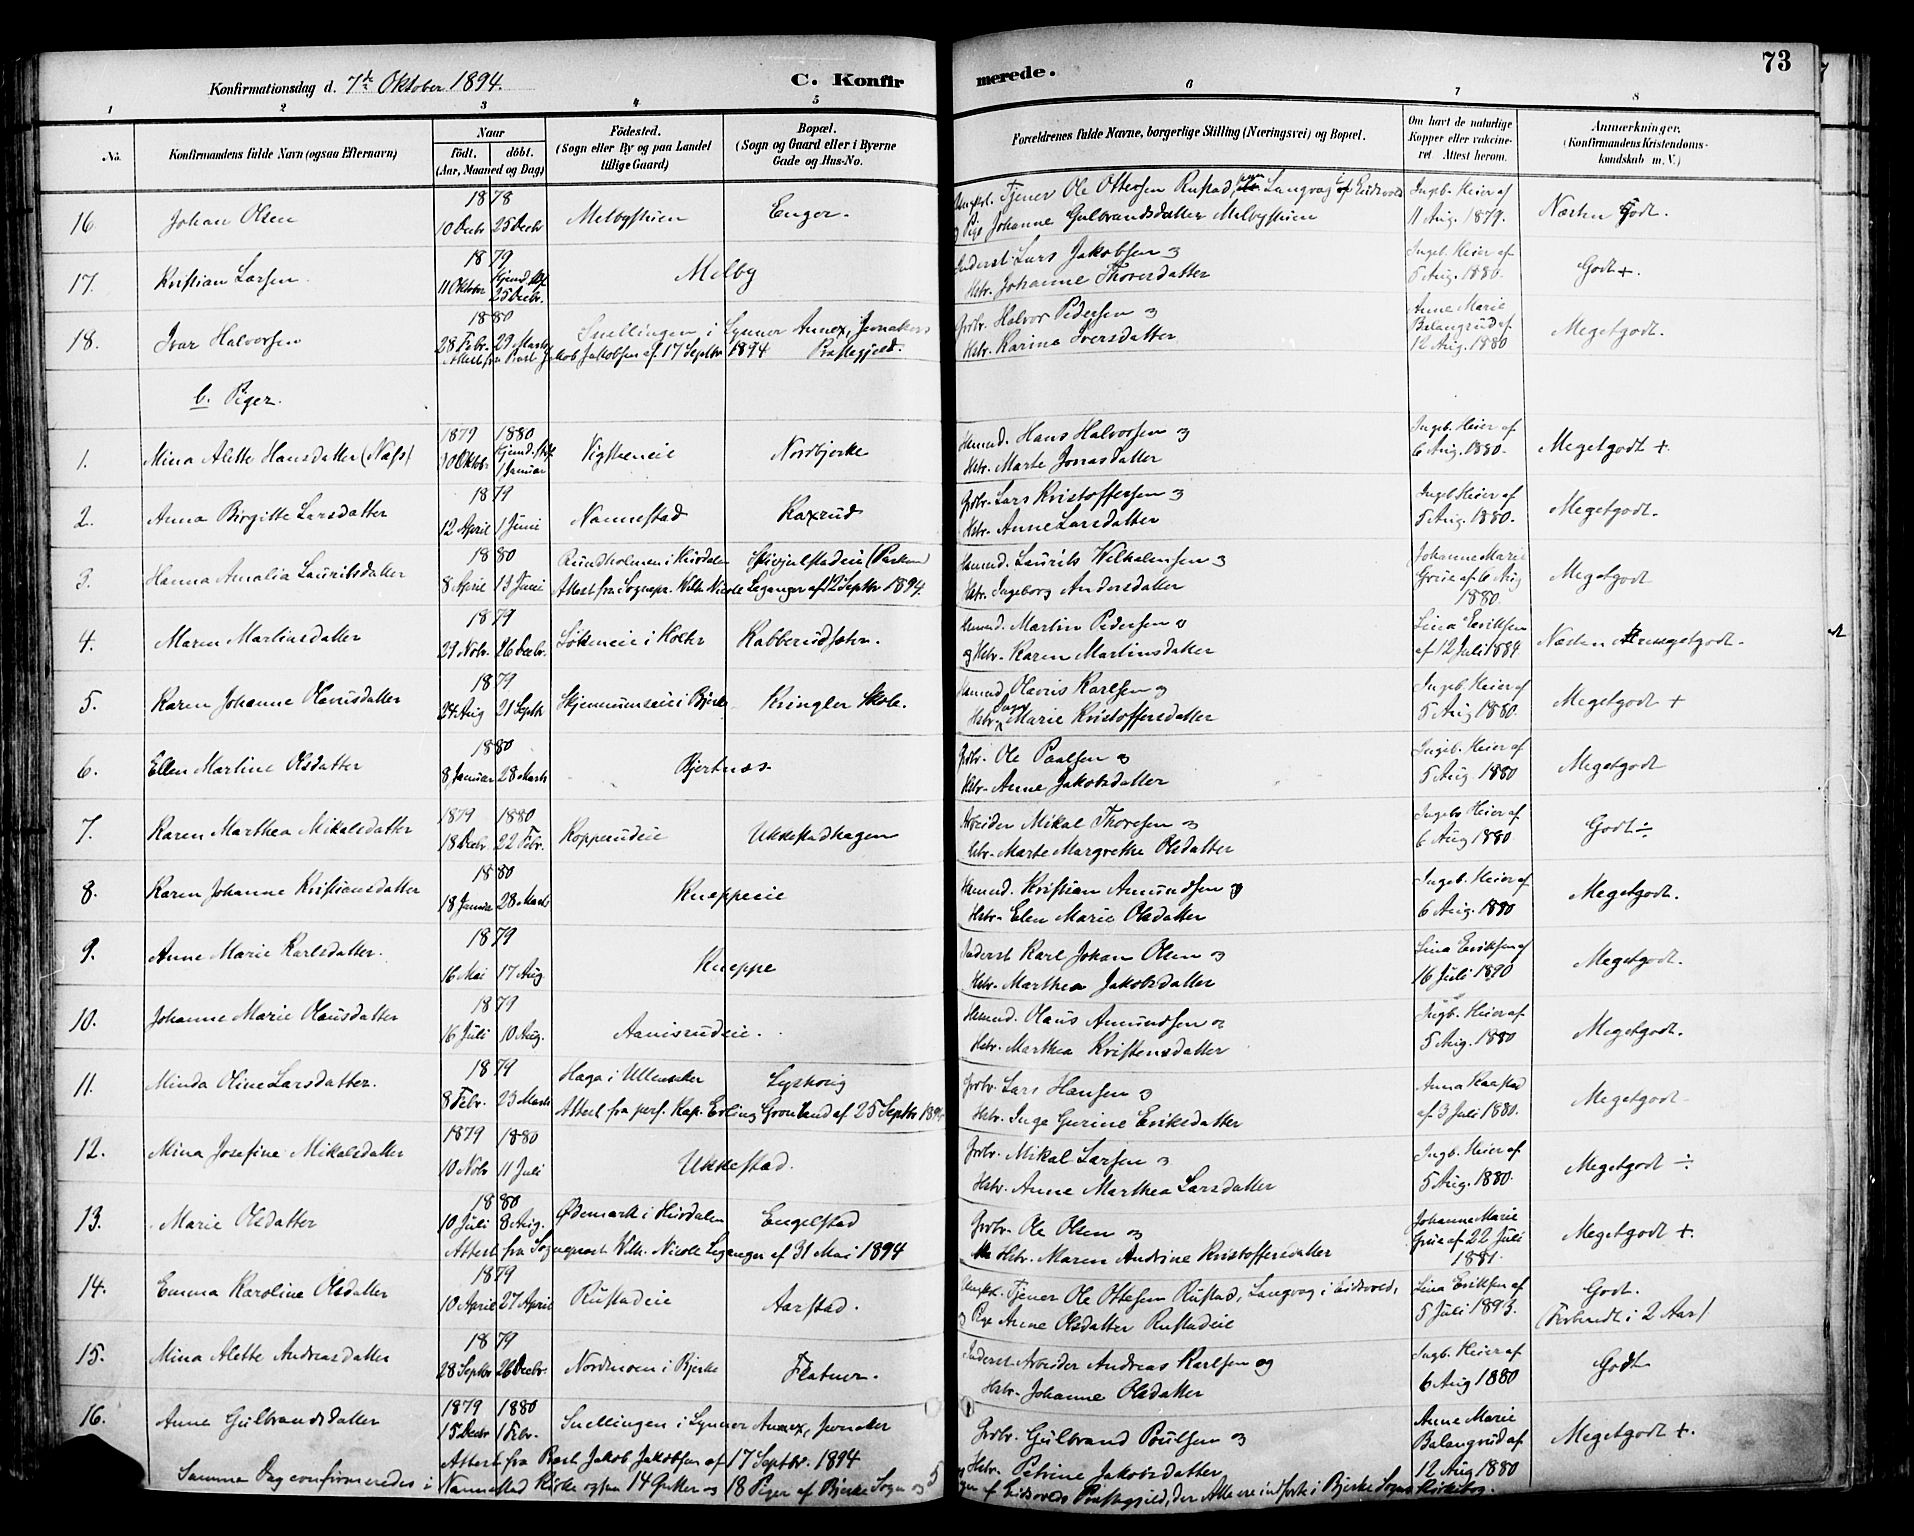 73
Konfirmationsdag d. 7de Oktober 1894.
C. Konfirmerede.
1 2 3 4 5 6 7 8
No.
Konfirmandens fulde Navn (ogsaa Efternavn)
Naar
Födt. döbt.
(Aar, Maaned og Dag)
Födested.
(Sogn eller By og paa Landet tillige Gaard)
Bopæl.
(Sogn og Gaard eller i Byerne Gade og Hus-No.
Forældrenes fulde Navne, borgerlige Stilling (Næringsvei) og Bopæl.
Om havt de naturlige Kopper eller vaccineret Attest herom.
Anmærkninger.
(Konfirmandens Kristendomskundskab m. V.)
16. Johan Olsen 1878 10 Decbr 25 Decbr Melbystuen Enger. Ungkl. Tjener Ole Ottersen Rustad, Langvag Eidsvold
og Pige Johanne Gulbrandsdatter Melbystuen Ingb. Heier af 11 Aug. 1879. Næsten Godt.
17. Kristian Larsen. 1879 11 Oktober 25 Decbr. Melby Inderst Lars Jakobsen og
Hstr. Johanne Thorersdatter Ingeb. Heier af 5 Aug. 1880. Godt +.
18. Ivar Halvorsen 1880 28 Febr. 29 Marts Snellingen i Lynner Annex, Jevnakers Præstegjeld.
Attest fra Prost Jakob Jakobsen af 17 Septbr 1894
Grbr. Halvor Pedersen og
Hstr. Karina Iversdatter Anne Marie Balangrud af 12 Aug. 1880 Megetgodt.
b. Piger.
1. Mina Alette Hansdatter (Næss) 1879 30 Oktbr 1880 1 Januar Vigsteneie Nordbjerke Husmd. Hans Halvorsen og
Hstr. Marte Jonasdatter Ingeb. Heier af 6 Aug. 1880. Megetgodt +.
2. Anna Birgitte Larsdatter 1879 12 April 1 Juni Nannestad Kaxrud Grbr. Lars Kristoffersen og
Hstr. Anne Larsdatter Ingb. Heier af 5 Aug. 1880. Megetgodt.
3. Hanna Amalia Lauritsdatter 1880 8 April 13 Juni Rundholmen i Hurdalen
Attest fra Sognepr. Wilh. Nicole Leganger af 12 Septbr 1894.
Husmd. Laurits Wilhelmsen og
Hstr. Ingeborg Andersdatter Johanne Marie Grue af 6 Aug 1880. Megetgodt
4. Maren Martinsdatter 1879 29 Novb. 26 Decbr. i Holter Kabberudsætr. Husmd. Martin Pedersen og
og Hstr. Karen Martinsdatter Lina Eriksen af 12 Juli 1884 Næsten megetgodt.
5. Karen Johanne Olavusdatter 1879 24 Aug 21 Septbr i Bjerke Kringler Skole. Husmd Olavus Karlsen og
Hstr. Marie Kristoffersdatter Ingeb. Heier af 5 Aug 1880. Megetgodt +
6. Ellen Martine Olsdatter 1880 8 Januar 28 Marts Bjertnæs Grbr. Ole Paalsen og
Hstr. Anne Jakobsdatter Ingb. Heier af 5 Aug. 1880 Megetgodt
7. Karen Marthea Mikalsdatter 1879 18 Decbr. 1880 22 Febr. Kopperudeie Ukkestadhagen Arbeider Mikal Thoresen og
Hstr. Marte Margrethe Olsdatter Ingeb Heier af 6 Aug 1880. Godt ÷
8. Karen Johanne Kristiansdatter 1880 18 Januar 28 Marts Kneppeeie Husmd. Kristian Amundsen og
Hstr. Elen Marie Olsdatter Ingeb. Heier af 6 Aug. 1880 Megetgodt.
9. Anne Marie Karlsdatter. 1879 16 Mai 17 Aug Kneppe Inderst Karl Johan Olsen og
Hstr. Marthea Jakobsdatter Lina Eriksen af 16 Juli 1890 Megetgodt.
10. Johanne Marie Olausdatter 1879 16 Juli 10 Aug. Aamisrudeie. Husmd. Olaus Amundsen og
Hstr. Marthea Kristensdatter Ingb. Heier af 5 Aug. 1880 Megetgodt.
11. Minda Oline Larsdatter. 1879 8 Febr. 23 Marts Haga i Ullensaker Lyshoug
Attest fra pers. Kap. Erling Grønland af 25 Septbr 1894
Grbr. Lars Hansen og
Hstr. Inge Gurine Eriksdatter Anna Raastad af 3 Juli 1880. Megetgodt
12. Mina Josefine Mikalsdatter 1879 10 Nobr 1880 11 Juli Ukkestad. Grbr. Mikal Larsen og
Hstr. Anne Marthea Larsdatter Ingb. Heier af 5 Aug. 1880. Megetgodt ÷
13. Marie Olsdatter 1880 10 Juli 8 Aug. Ødemark i Hurdalen Engelstad
Attest fra Sogneprest Wilh. Nicole Leganger af 31 Mai 1894
Grbr. Ole Olsen og
Hstr. Maren Andrine Kristoffersdatter Johanne Marie Grue af 22 Juli 1881. Megetgodt +.
14. Emma Karoline Olsdatter 1879 10 April 27 April Rustadeie Aarstad. Ungkl. Tjener Ole Ottesen Rustad, Langvag i Eidsvold,
og Pige Anne Olsdatter Rustadeie Lina Eriksen af 5 Juli 1893. Godt.
(Forberedt i 2 Aar)
15. Mina Alette Andreasdatter 1879 28 Septbr 26 Decbr. Nordmoen i Bjerke Flatner. Inderst Arbeider Andreas Karlsen og
Hstr. Johanne Olsdatter Ingb. Heier af 6 Aug 1880 Godt
16. Anne Gulbrandsdatter 1879 15 Decbr 1880 1 Febr. Snellingen i Lynner Annex, Jevnaker
Attest fra Prost Jakob Jakobsen af 17 Septbr. 1894
Grbr. Gulbrand Poulsen og
Hstr. Petrine Jakobsdatter Anne Marie Balangrud af 12 Aug 1880 Megetgodt +.
Samme Dag confirmeredes i Nannestad Kirke ogsaa 14 Gutter og 18 Piger af Bjerke Sogn og 5
Piger af Eidsvolds Præstegjeld, der Alle ere indførte i Bjerke Sogns Kirkebog.